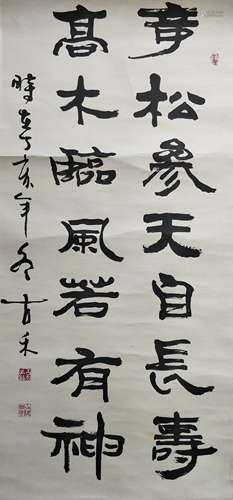 奇松參天自長壽
高木臨風若有神
時在辛亥年冬古禾